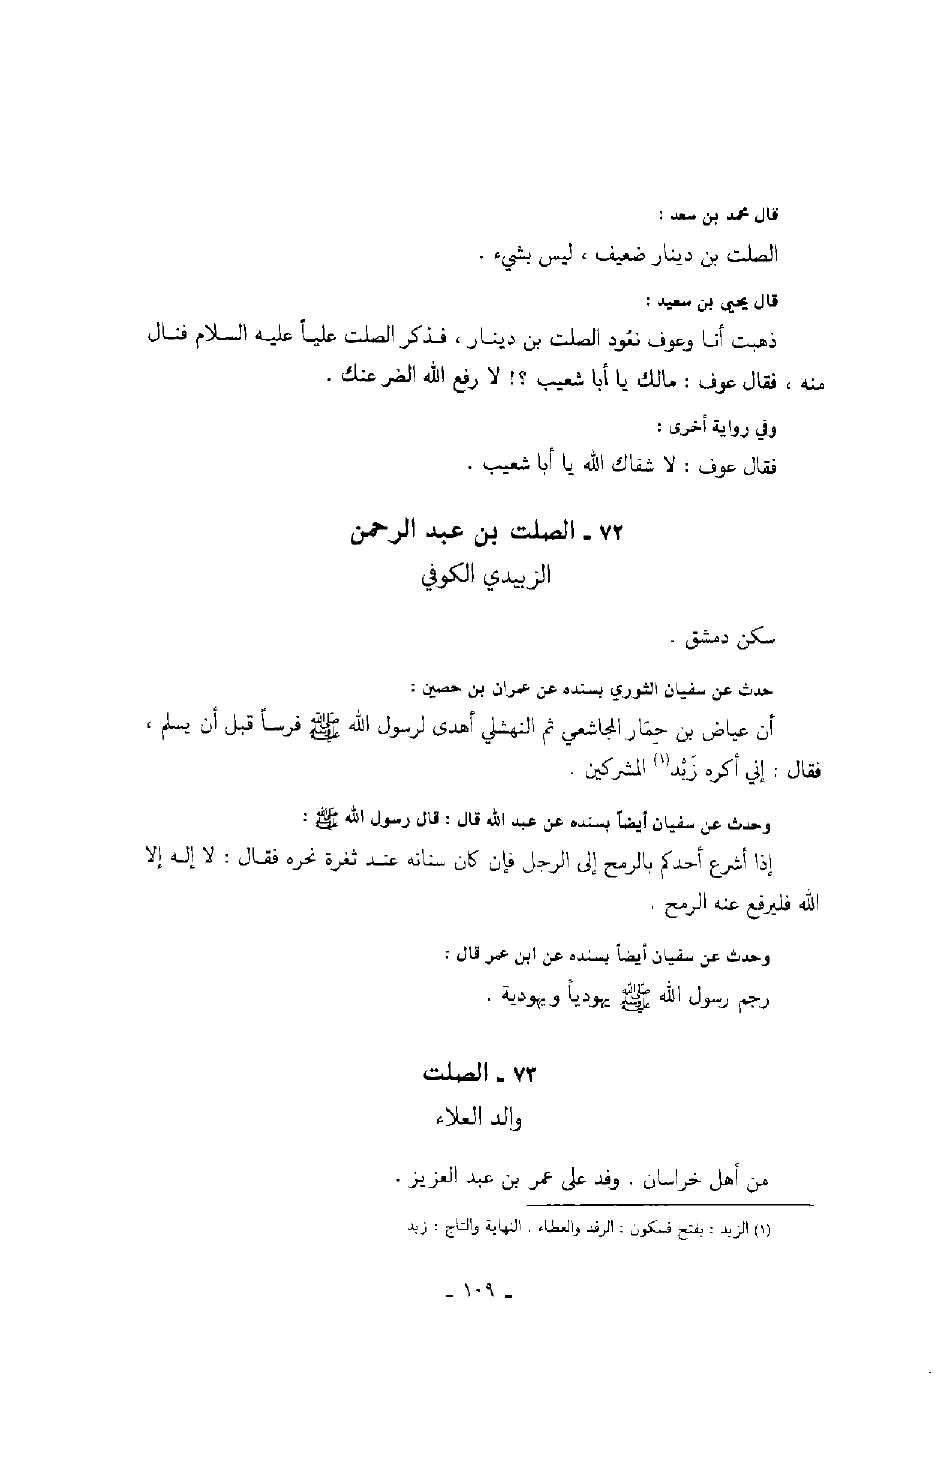 قال محمد بن سعد :
الصلت بن دينار ضعيف ، ليس بشيء .
قال يحيى بن سعيد :
ذهبت أنا وعوف نعُود الصلت بن دينار ، فذكر الصلت علياً عليه السلام فنال
منه ، فقال عوف : مالك يا أبا شعيب ؟! لا رفع الله الضر عنك .
وفي رواية أخرى :
فقال عوف : لا شفاك الله يا أبا شعيب .
٧٢ ـ الصلت بن عبد الرحمن
الزبيدي الكوفي
سكن دمشق .
حدث عن سفيان الثوري بسنده عن عمران بن حصين :
أن عياض بن حِمَار المجاشعي ثم النهشلي أهدى لرسول الله ﷺ فرساً قبل أن يسلم ،
فقال : إني أكره زَبْد(١) المشركين .
وحدث عن سفيان أيضاً بسنده عن عبد الله قال : قال رسول الله ﷺ :
إذا أشرع أحدكم بالرمح إلى الرجل فإن كان سنانه عند ثغرة نحره فقال : لا إله إلا
الله فليرفع عنه الرمح .
وحدث عن سفيان أيضاً بسنده عن ابن عمر قال :
رجم رسول الله ﷺ يهودياً ويهودية .
٧٣ ـ الصلت
والد العلاء
من أهل خراسان . وفد على عمر بن عبد العزيز .
(١) الزبد : بفتح فسكون : الرفد والعطاء . النهاية والتاج : زبد
ـ ١٠٩ ـ